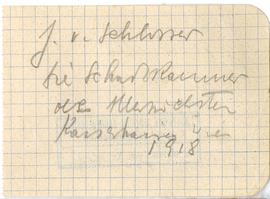 J. v. Schlosser
Die Schatzkammer
des Allerhöchsten
Kaiserhauses
1918